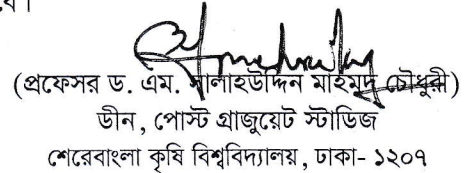 (প্রফেসর ড. এম. সালাহউদ্দিন মাহমুদ চৌধুরী)
ডীন, পোস্ট গ্রাজুয়েট স্টাডিজ
শেরেবাংলা কৃষি বিশ্ববিদ্যালয়, ঢাকা- ১২০৭